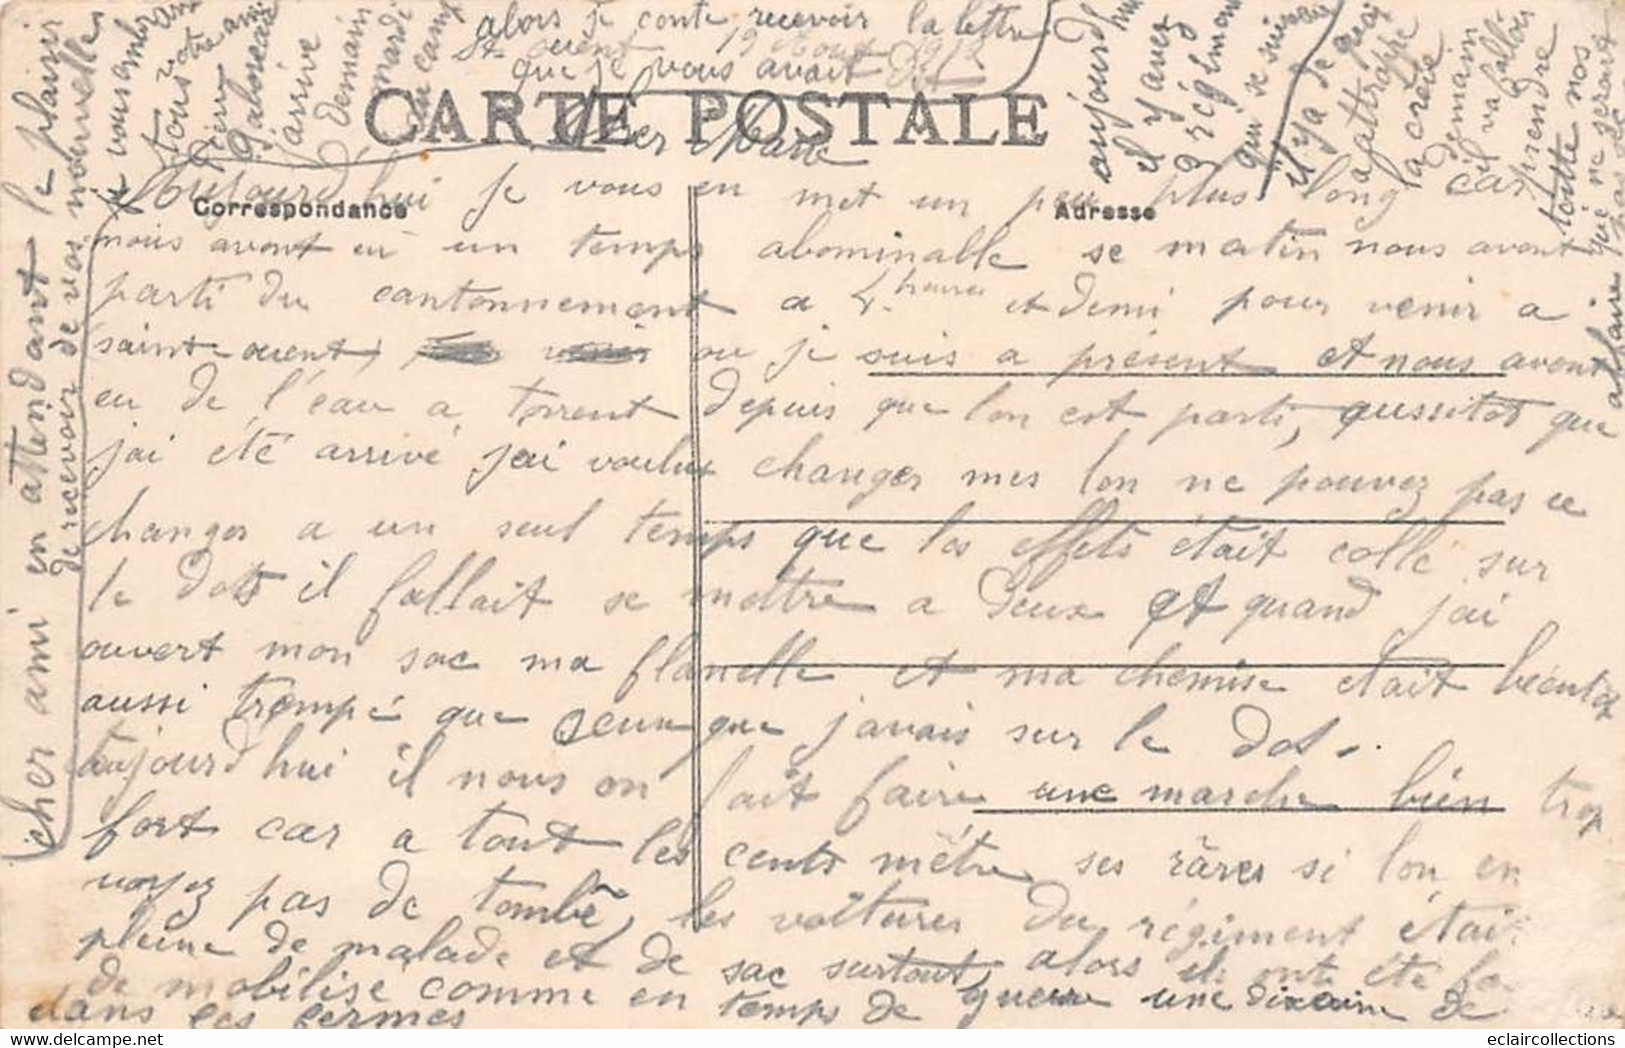 alors je conte recevoir la lettre
St ouent 19 Aout 1912
que je vous avait
CARTE POSTALE
Cher
Correspondance
Adresse
Aujourd'hui je vous en met un peu plus long car
nous avont eu un temps abominable se matin nous avont
parti du cantonnement a 4 heures et demi pour venir a
saint ouent, ou je suis a présent et nous avont
eu de l'eau a torrent depuis que lon est parti, aussitot que
jai été arrivé jai voulus changer mes lon ne pouvez pas ce
changer a un seul temps que les effets était collé sur
le dots il fallait se mettre a deux et quand jai
ouvert mon sac ma flanelle et ma chemise etait bientot
aussi trempé que ceux que javais sur le dos.
aujourd'hui il nous on fait faire une marche bien trop
fort car a tout les cents métre ses rares si lon en
voyez pas de tombé, les voitures du régiment étai
pleine de malade et de sac surtout, alors il ont été
de mobilise comme en temps de guerre une dixaine de
dans les fermes
aujourd'hui
il y avez
3 régiment
qui se suivai
il y a de quoi
attrappe
la crève
demain
il va falloir
prendre
toute nos
affaires qui ne serait
pas
cher ami en attendant le plaisir
de recevoir de vos nouvelle
je vous embrasse
tous
votre ami
Pierre
j'arrive
demain
mardi
au camp
eclaircollections